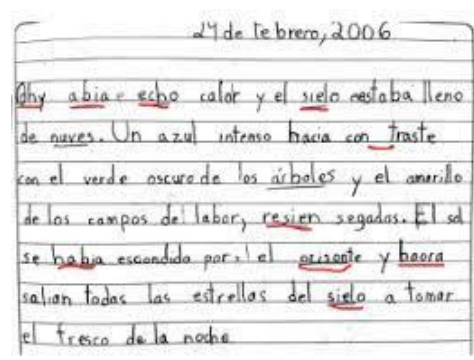 24 de febrero, 2006
Ahy abia echo calor y el sielo estaba lleno
de nuves. Un azul intenso hacia con traste
con el verde oscuro de los árboles y el amarillo
de los campos de labor, resien segados. El sol
se habia escondido por el orisonte y haora
salian todas las estrellas del sielo a tomar
el fresco de la noche